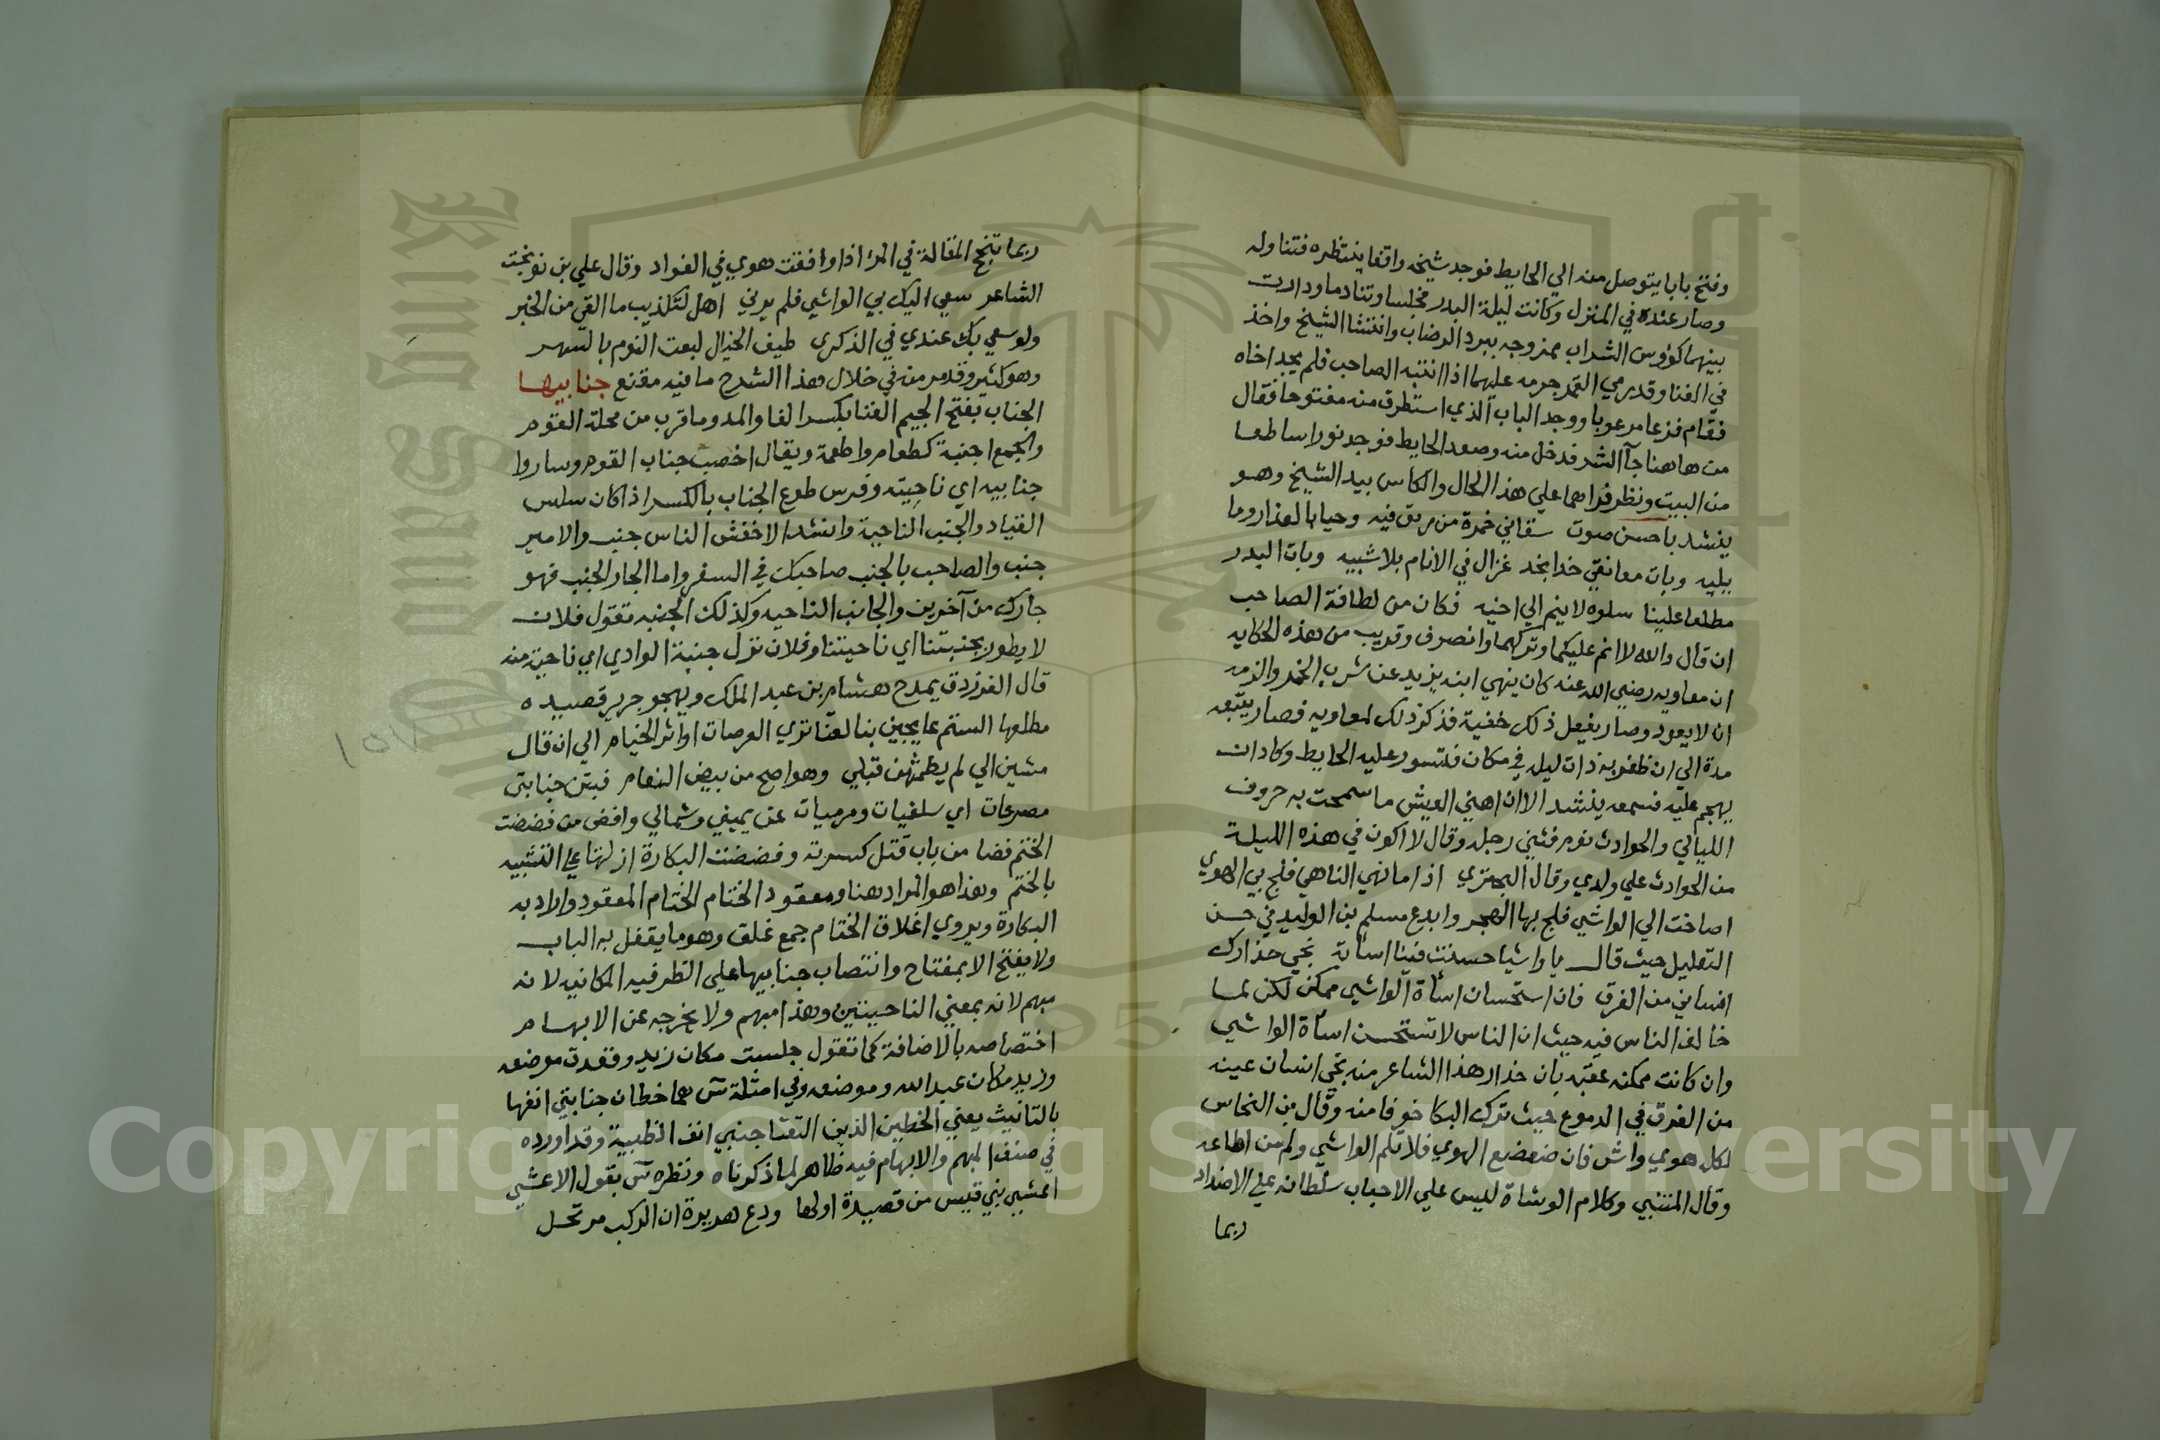 وفتح بابا يتوصل منه الي الحايط فوجد شيخه واقفا ينتظره فتناوله
وصار عنده في المنزل وكانت ليلة البدر فجلسا وتنادما ودارت
بينهما كؤوس الشراب ممزوجه ببرد الرضاب وانتشا الشيخ واخذ
في الغنا وقد رمي القمر جرمه عليهما اذا انتبه الصاحب فلم يجد اخاه
فقام فزعا مرعوبا ووجد الباب الذي استطرق منه مفتوحا فقال
من هاهنا جآ الشر فدخل منه وصعد الحايط فوجد نورا ساطعا
من البيت ونظر فراهما علي هذا الحال والكاس بيد الشيخ وهو
ينشد باحسن صوت سقاني خمرة من ريق فيه وحيا بالعذار وما
يليه وبات معانقي خدا بخد غزال في الانام بلا شبيه وبات البدر
مطلعا علينا سلوه لا ينم الي اخيه فكان من لطافة الصاحب
ان قال والله لا انم عليكما وتركهما وانصرف وقريب من هذه الحكايه
ان معاويه رضي الله عنه كان ينهي ابنه يزيد عن شرب الخمر والزمه
ان لا يعود وصار يفعل ذلك خفية فذكر ذلك لمعاويه فصار يتبعه
مدة الي ان ظفر به ذات ليله في مكان فتسور عليه الحايط وكاد ان
يهجم عليه فسمعه ينشد الا ان اهني العيش ما سمحت به حروف
الليالي والحوادث نوم فثني رجله وقال لا اكون في هذه الليلة
من الحوادث علي ولدي وقال البحتري اذا ما نهي الناهي فلج بي الهوي
اصاخت الي الواشي فلج بها الهجر وابدع مسلم بن الوليد في حسن
التعليل حيث قال يا واشيا حسنت فينا اسآته نجي حذارك
انساني من الغرق فان استحسان اسآة الواشي ممكن لكن لما
خالف الناس فيه حيث ان الناس لا تستحسن اسآة الواشي
وان كانت ممكنه عقبه بان حذار هذا الشاعر منه نجي انسان عينه
من الغرق في الدموع حيث ترك البكا خوفا منه وقال بن النحاس
لكل هوي واش فان ضعضع الهوي فلا تلم الواشي ولم من اطاعه
وقال المتنبي وكلام الوشاة ليس علي الاحباب سلطانه علي الاضداد
ربما
ربما تنجح المقالة في المرء اذا وافقت هوي في الفواد وقال علي بن نوبخت
الشاعر سعي اليك بي الواشي فلم يرني اهل لتكذيب ما القي من الخبر
ولو سعي بك عندي في الذكري طيف الخيال لبعت النوم بالسهر
وهو كثير وقد مر منه في خلال هذا الشرح ما فيه مقنع جنابيها
الجناب بفتح الجيم الفنا بكسر الفا والمد وما قرب من محلة القوم
والجمع اجنبة كطعام واطعمة ويقال اخصب جناب القوم وساروا
جنابيه اي ناحيته وفرس طوع الجناب بالكسر اذا كان سلس
القياد والجنب الناحية وانشد الاخفش الناس جنب والامير
جنب والصاحب بالجنب صاحبك في السفر واما الجار الجنب فهو
جارك من آخرين والجانب الناحيه وكذلك الجنبه تقول فلان
لا يطور بجنبتنا اي ناحيتنا وفلان نزل جنبة الوادي اي ناحية منه
قال الفرزدق يمدح هشام بن عبد الملك ويهجو جرير قصيده
مطلعها الستم عايجين بنا لعنا نري العرصات او اثر الخيام الي ان قال
مشين الي لم يطمثهن قبلي وهو اصح من بيض النعام فبتن جنابتي
مصرعات اي سلقيات ومرميات عن يميني وشمالي وافض من فضضت
الختم فضا من باب قتل كسرته وفضضت البكارة ازلتها علي التشبيه
بالختم وهذا هو المراد هنا ومعقود الختام الختام المعقود واراد به
البكارة ويروي اغلاق الختام جمع غلق وهو ما يقفل به الباب
ولا يفتح الا بمفتاح وانتصاب جنابيها علي الظرفيه المكانيه لانه
مبهم لانه بمعني الناحيتين وهذا مبهم ولا يخرجه عن الابهام
اختصاصه بالاضافة كما تقول جلست مكان زيد وقعدت موضعه
وزيد مكان عبد الله وموضعه وفي امثلة س هما خطان جنابتي انفها
بالتانيث يعني الخطين الذين التفتا جنبي انف الظبية وقد اورده
في صنف المبهم والابهام فيه ظاهر لما ذكرناه ونظره س بقول الاعشي
اعشي بني قيس من قصيدة اولها ودع هريرة ان الركب مرتحل
Copyright © King Saud University
King Saud University
1957